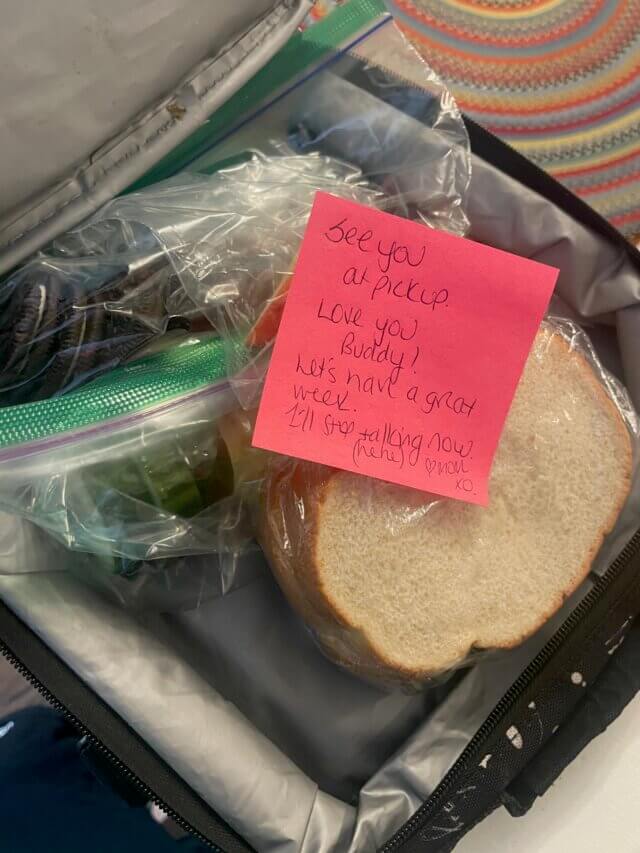 See you
at pickup.
Love you
Buddy!
Let's have a great
week.
I'll stop talking now.
(hehe) ♡MOM
XO.